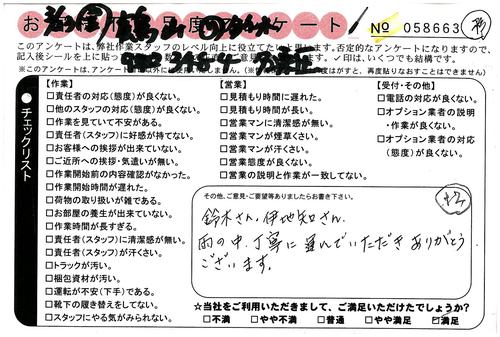 № 058663
このアンケートは、弊社作業スタッフのレベル向上に役立てたいと思います。否定的なアンケートになりますので、
チェックリスト
【作業】
□責任者の対応(態度)が良くない。
□他のスタッフの対応(態度)が良くない。
□作業を見ていて不安がある。
□責任者(スタッフ)に好感が持てない。
□お客様への挨拶が出来ていない。
□ご近所への挨拶・気遣いが無い。
□作業開始前の内容確認がなかった。
□作業開始時間が遅れた。
□荷物の取り扱いが雑である。
□お部屋の養生が出来ていない。
□作業時間が長すぎる。
□責任者(スタッフ)に清潔感が無い。
□責任者(スタッフ)が汗くさい。
□トラックが汚い。
□梱包資材が汚い。
□運転が不安(下手)である。
□靴下の履き替えをしてない。
□スタッフにやる気がみられない。
【営業】
□見積もり時間に遅れた。
□見積もり時間が長い。
□営業マンに清潔感が無い。
□営業マンが煙草くさい。
□営業マンが汗くさい。
□営業態度が良くない。
□営業の説明と作業が一致してない。
【受付・その他】
□電話の対応が良くない。
□オプション業者の説明
・作業が良くない。
□オプション業者の対応
(態度)が良くない。
その他、ご意見・ご要望等ありましたらお書き下さい。
鈴木さん、伊地知さん
雨の中、丁寧に運んでいただきありがとう
ございます。
☆当社をご利用いただきまして、ご満足いただけたでしょうか?
□不満 □やや不満 □普通 □やや満足 ☑満足